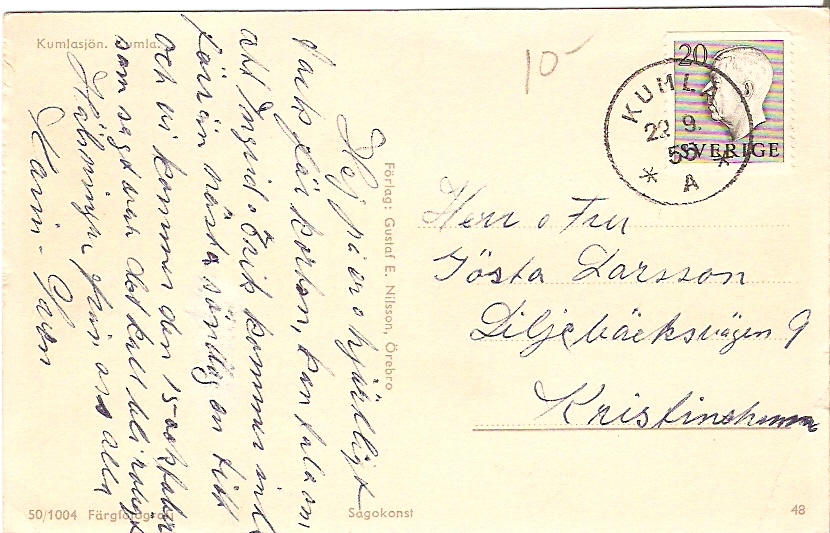 Kumlasjön. Kumla.
Hej på er o hjärtligt
tack för korten, kan tala om
att Ingrid o Erik kommer inte
förrän nästa söndag en titt
och vi kommer den 15 oktober
som sagt var det skall bli roligt
Hälsningar från oss alla
Karin - Sven
Förlag: Gustaf E. Nilsson, Örebro
50/1004 Färgfotografi
Sagokonst
48
10-
20
SVERIGE
KUMLA
22 9.
55
* A *
Herr o Fru
Gösta Larsson
Liljebäcksvägen 9
Kristinehamn